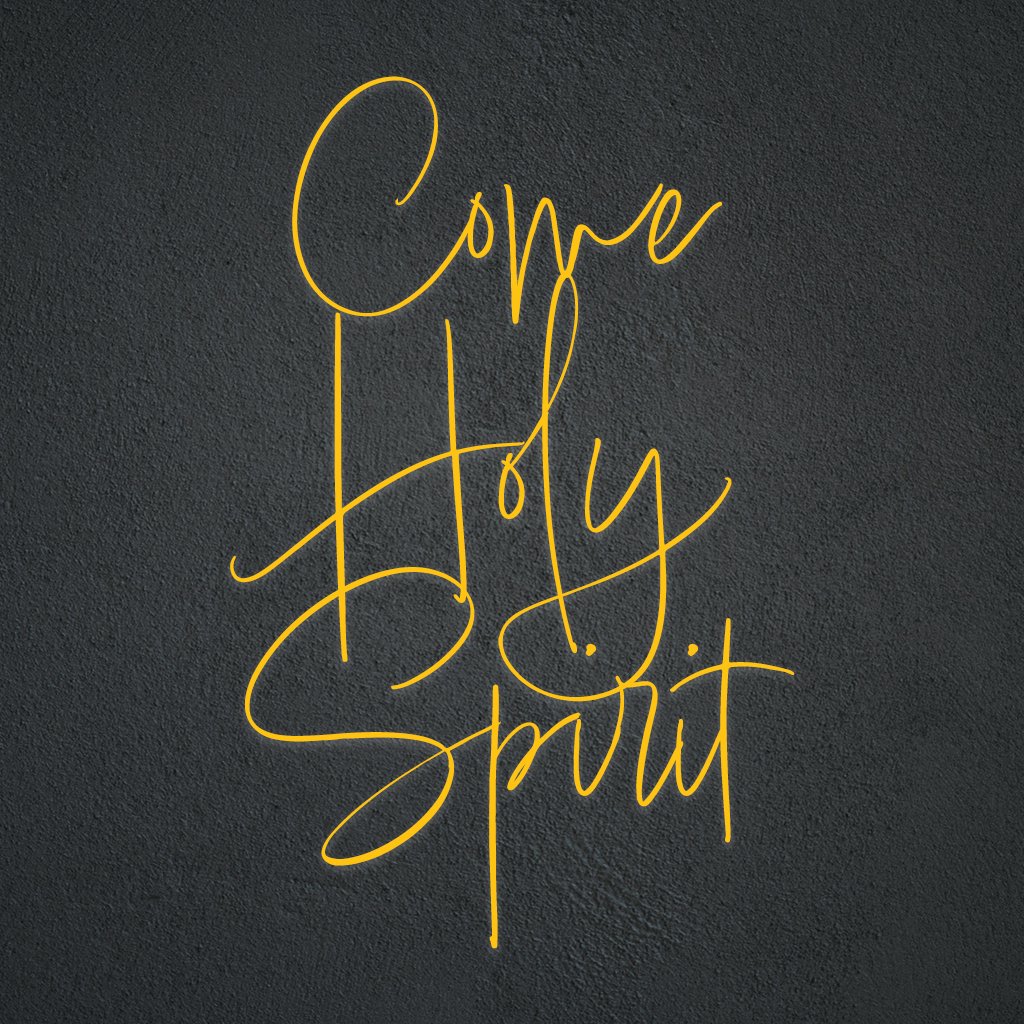 Come
Holy
Spirit